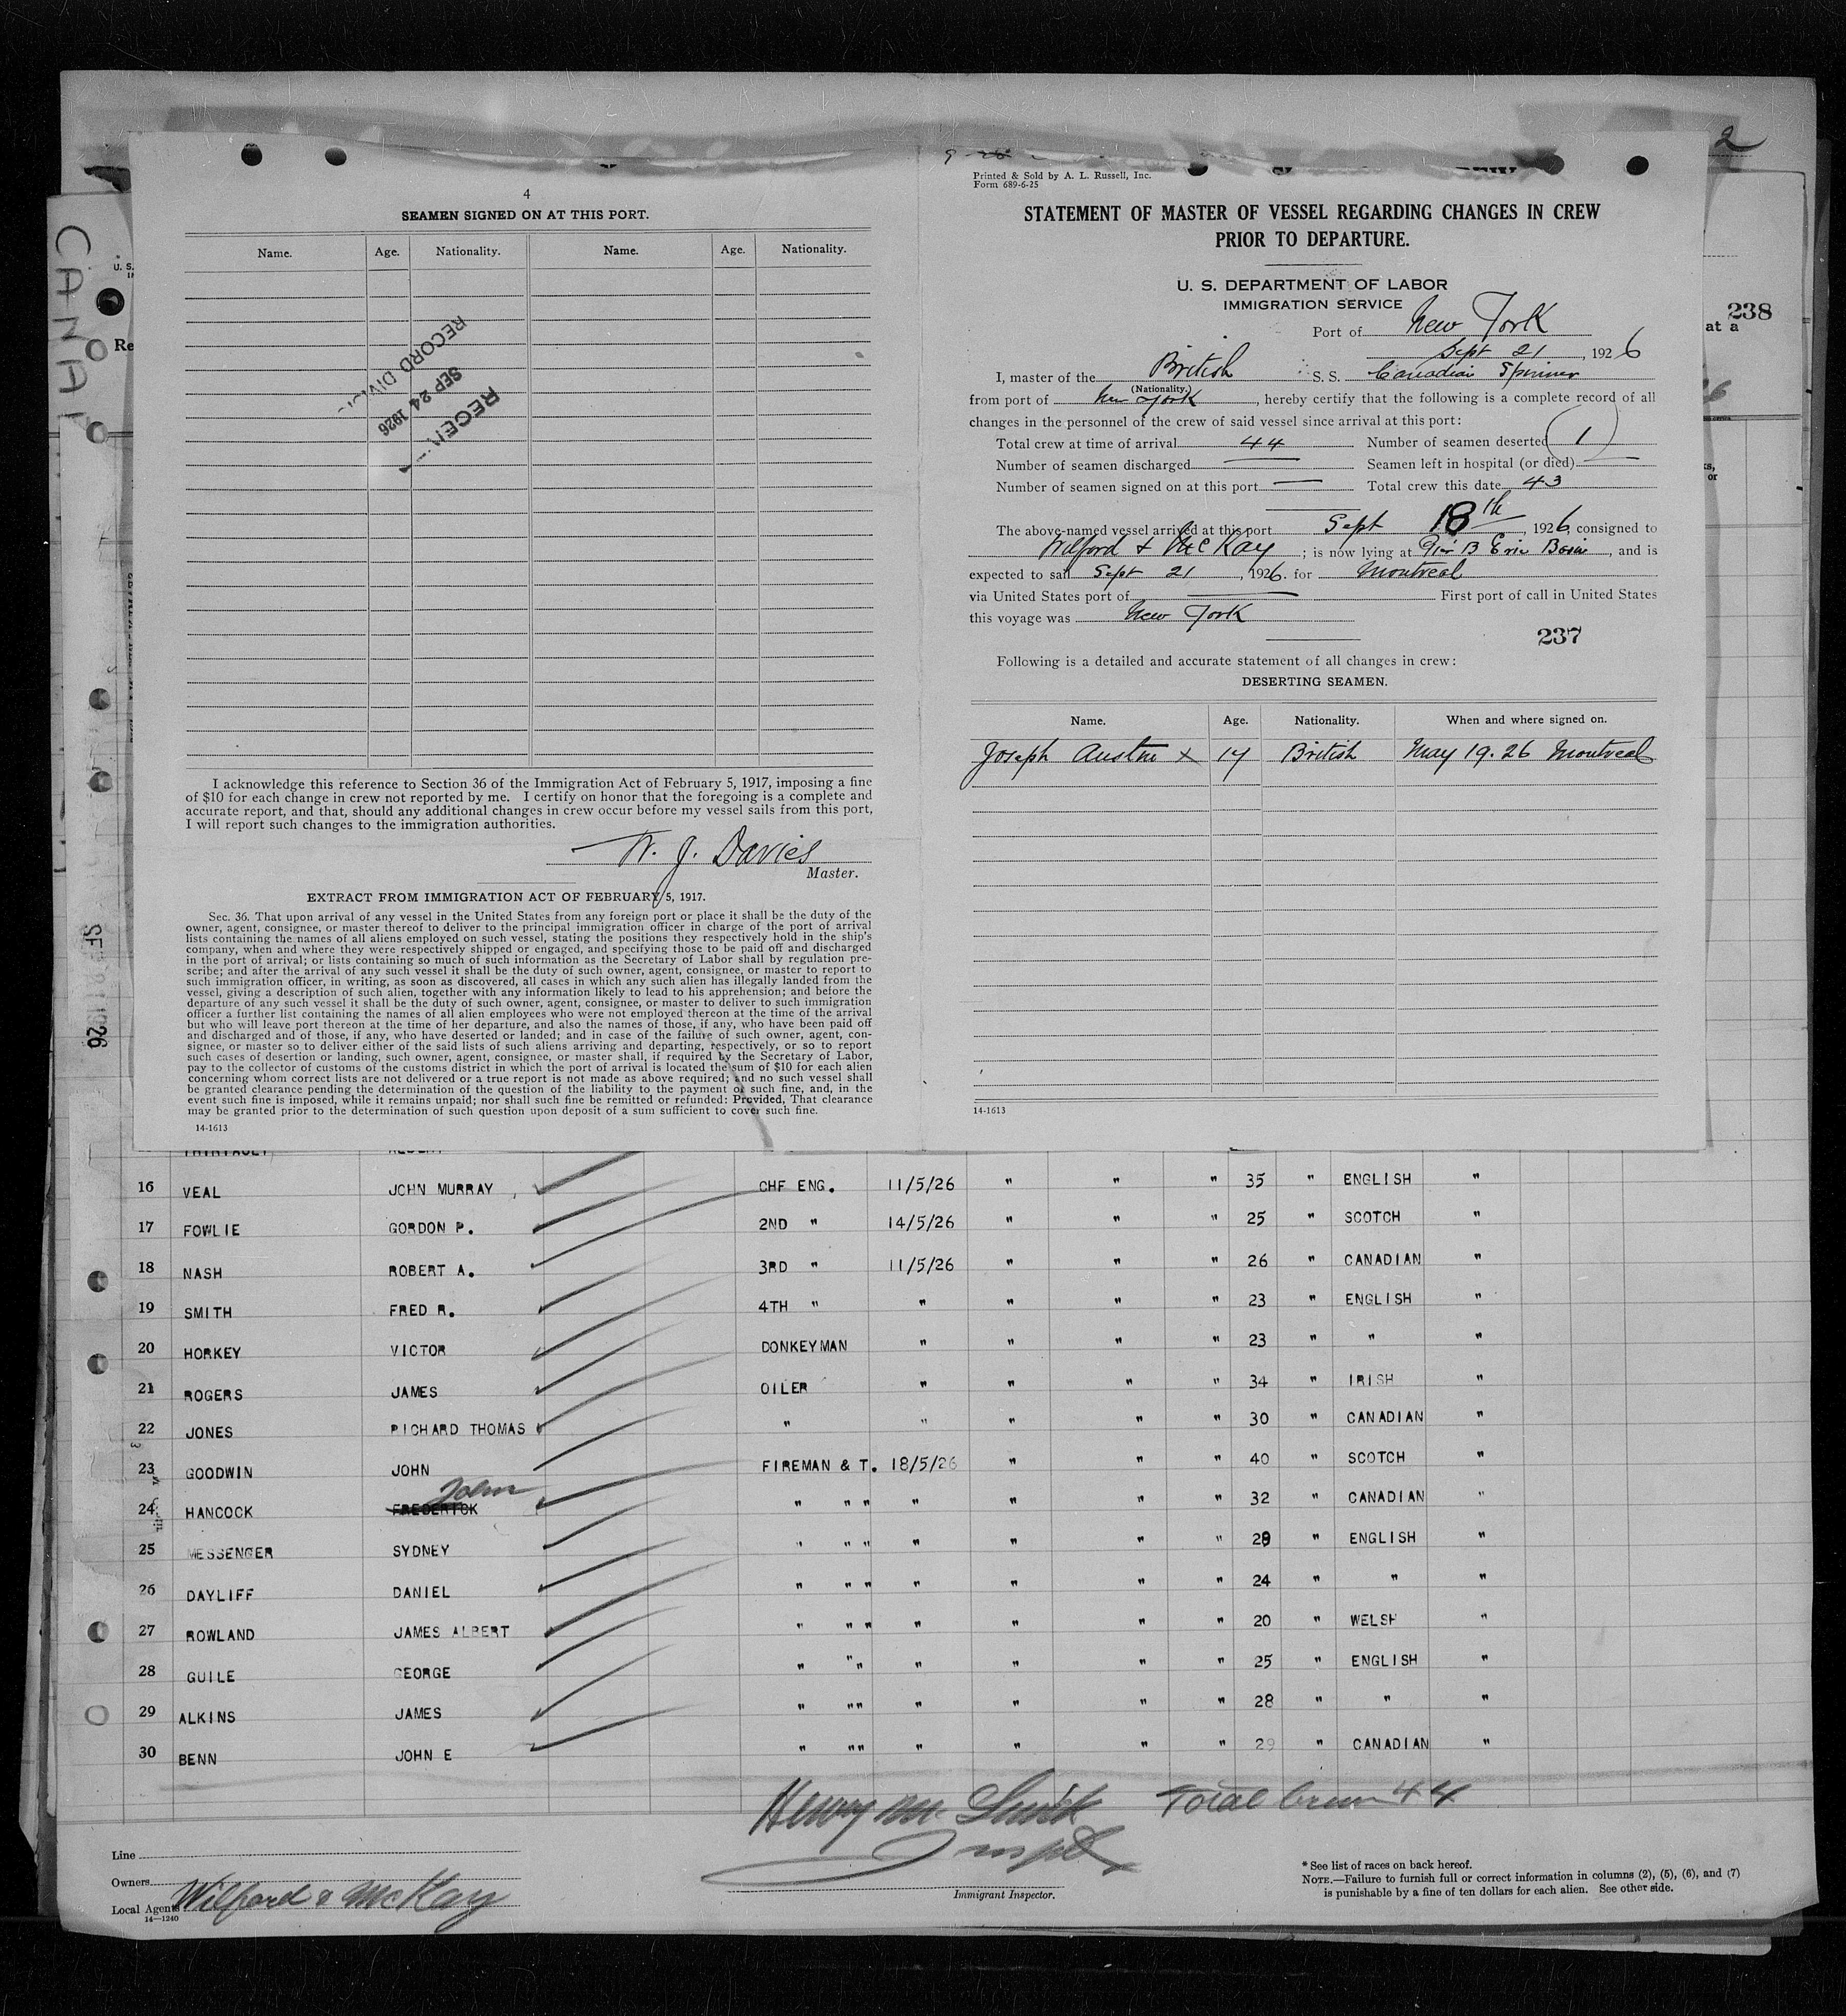 2
CANA
4
SEAMEN SIGNED ON AT THIS PORT.
Name. Age. Nationality. Name. Age. Nationality.
RECORD
SEP 24 1926
I acknowledge this reference to Section 36 of the Immigration Act of February 5, 1917, imposing a fine
of $10 for each change in crew not reported by me. I certify on honor that the foregoing is a complete and
accurate report, and that, should any additional changes in crew occur before my vessel sails from this port,
I will report such changes to the immigration authorities.
W. J. Davies
Master.
EXTRACT FROM IMMIGRATION ACT OF FEBRUARY 5, 1917.
Sec. 36. That upon arrival of any vessel in the United States from any foreign port or place it shall be the duty of the
owner, agent, consignee, or master thereof to deliver to the principal immigration officer in charge of the port of arrival
lists containing the names of all aliens employed on such vessel, stating the positions they respectively hold in the ship's
company, when and where they were respectively shipped or engaged, and specifying those to be paid off and discharged
in the port of arrival; or lists containing so much of such information as the Secretary of Labor shall by regulation pre-
scribe; and after the arrival of any such vessel it shall be the duty of such owner, agent, consignee, or master to report to
such immigration officer, in writing, as soon as discovered, all cases in which any such alien has illegally landed from the
vessel, giving a description of such alien, together with any information likely to lead to his apprehension; and before the
departure of any such vessel it shall be the duty of such owner, agent, consignee, or master to deliver to such immigration
officer a further list containing the names of all alien employees who were not employed thereon at the time of the arrival
but who will leave port thereon at the time of her departure, and also the names of those, if any, who have been paid off
and discharged and of those, if any, who have deserted or landed; and in case of the failure of such owner, agent, con-
signee, or master so to deliver either of the said lists of such aliens arriving and departing, respectively, or so to report
such cases of desertion or landing, such owner, agent, consignee, or master shall, if required by the Secretary of Labor,
pay to the collector of customs of the customs district in which the port of arrival is located the sum of $10 for each alien
concerning whom correct lists are not delivered or a true report is not made as above required; and no such vessel shall
be granted clearance pending the determination of the question of the liability to the payment of such fine, and, in the
event such fine is imposed, while it remains unpaid; nor shall such fine be remitted or refunded: Provided, That clearance
may be granted prior to the determination of such question upon deposit of a sum sufficient to cover such fine.
14-1613
Printed & Sold by A. L. Russell, Inc.
Form 689-6-25
STATEMENT OF MASTER OF VESSEL REGARDING CHANGES IN CREW
PRIOR TO DEPARTURE.
U. S. DEPARTMENT OF LABOR
IMMIGRATION SERVICE
Port of New York
Sept 21, 1926
I, master of the British S. S. Canadian Spinner
(Nationality.)
from port of New York, hereby certify that the following is a complete record of all
changes in the personnel of the crew of said vessel since arrival at this port:
Total crew at time of arrival 44 Number of seamen deserted 1
Number of seamen discharged — Seamen left in hospital (or died) —
Number of seamen signed on at this port — Total crew this date 43
The above-named vessel arrived at this port Sept 18th, 1926, consigned to
Wilford & McKay; is now lying at Pier B Erie Basin, and is
expected to sail Sept 21, 1926. for Montreal
via United States port of — First port of call in United States
this voyage was New York
237
Following is a detailed and accurate statement of all changes in crew:
DESERTING SEAMEN.
Name. Age. Nationality. When and where signed on.
Joseph Austin x 17 British May 19. 26 Montreal
14-1613
238
at a
16 VEAL JOHN MURRAY CHF ENG. 11/5/26 " " " 35 " ENGLISH "
17 FOWLIE GORDON P. 2ND " 14/5/26 " " " 25 " SCOTCH "
18 NASH ROBERT A. 3RD " 11/5/26 " " " 26 " CANADIAN "
19 SMITH FRED R. 4TH " " " " " 23 " ENGLISH "
20 HORKEY VICTOR DONKEYMAN " " " " 23 " " "
21 ROGERS JAMES OILER " " " " 34 " IRISH "
22 JONES RICHARD THOMAS " " " " " 30 " CANADIAN "
23 GOODWIN JOHN FIREMAN & T. 18/5/26 " " " 40 " SCOTCH "
John
24 HANCOCK FREDERICK " " " " " " " 32 " CANADIAN "
25 MESSENGER SYDNEY " " " " " " " 28 " ENGLISH "
26 DAYLIFF DANIEL " " " " " " " 24 " " "
27 ROWLAND JAMES ALBERT " " " " " " " 20 " WELSH "
28 GUILE GEORGE " " " " " " " 25 " ENGLISH "
29 ALKINS JAMES " " " " " " " 28 " " "
30 BENN JOHN E " " " " " " " 29 " CANADIAN "
Total Crew 44
Line
Owners
Local Agents Wilford & McKay
14—1240
Immigrant Inspector.
* See list of races on back hereof.
NOTE.—Failure to furnish full or correct information in columns (2), (5), (6), and (7)
is punishable by a fine of ten dollars for each alien. See other side.